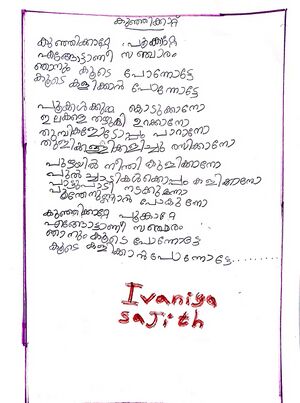 കുഞ്ഞിക്കാറ്റ്
കുഞ്ഞിക്കാറ്റേ പൂങ്കാറ്റേ
എങ്ങോട്ടാണീ സഞ്ചാരം
ഞാനും കൂടെ പോന്നോട്ടേ
കൂടെ കളിക്കാൻ പോന്നോട്ടേ
പൂക്കൾക്കുമ്മ കൊടുക്കാനോ
ഇലകളെ തഴുകി ഉറക്കാനോ
തുമ്പികളോടൊപ്പം പാറാനോ
തുള്ളിക്കളിച്ചു രസിക്കാനോ
പുഴയിൽ നീന്തി കുളിക്കാനോ
പുൽച്ചാടികൾക്കൊപ്പം കളിക്കാനോ
പാട്ടുപാടി നടക്കാനോ
പൂന്തേനുണ്ണാൻ പോകുന്നോ
കുഞ്ഞിക്കാറ്റേ പൂങ്കാറ്റേ
എങ്ങോട്ടാണീ സഞ്ചാരം
ഞാനും കൂടെ പോന്നോട്ടേ
കൂടെ കളിക്കാൻ പോന്നോട്ടേ.........
Ivaniya
sajith